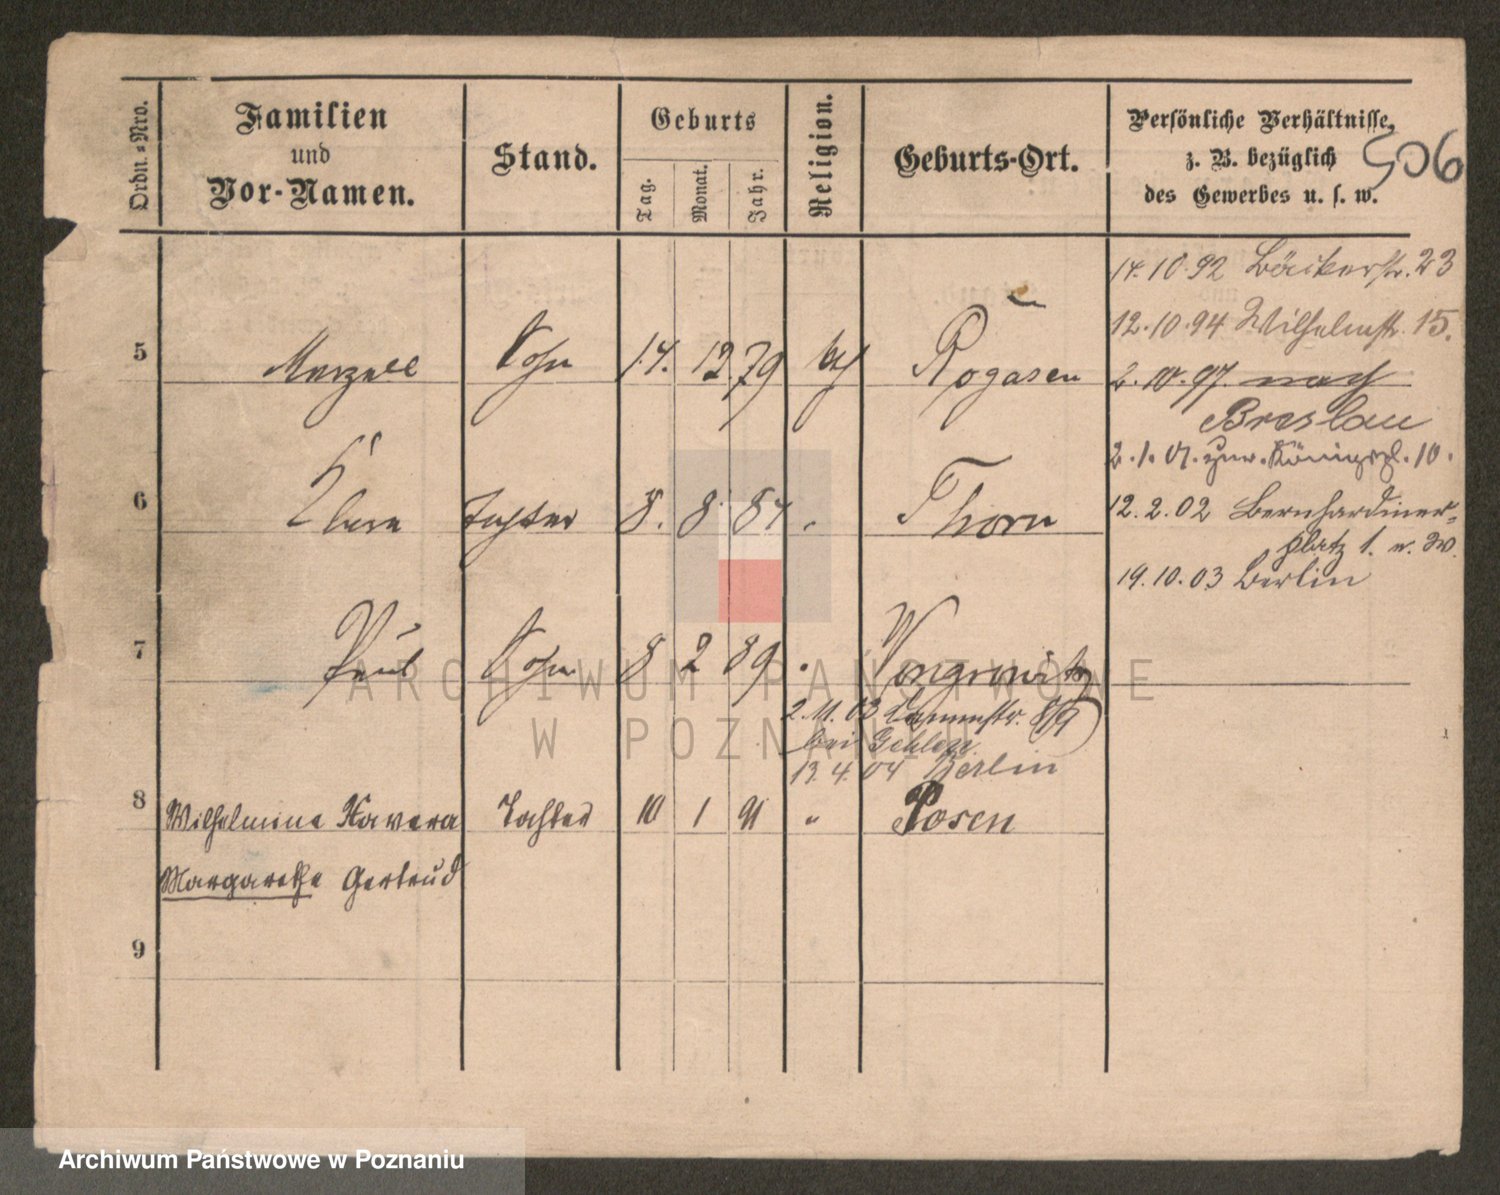 Ordn.-Nro.
Familien
und
Vor-Namen.
Stand.
Geburts
Tag.
Monat.
Jahr.
Religion.
Geburts-Ort.
Persönliche Verhältnisse,
z. B. bezüglich
des Gewerbes u. s. w.
506
14.10.92 Bäckerstr. 23
12.10.94 Wilhelmstr. 15.
5 Marzell Sohn 14. 12 79 kth Rogasen
2.10.97. nach
Breslau
2.1.01. Königspl. 10.
6 Klara Tochter 8. 8 84 " Thorn
12.2.02 Bernhardiner-
platz 1.
19.10.03 Berlin
7 Paul Sohn 8 2 89 " Wongrowitz
2.11.03 8/9
bei
13.4.04 Berlin
8 Wilhelmine Xavera Tochter 10 1 91 " Posen
Margarethe Gertrud
9
ARCHIWUM PAŃSTWOWE
W POZNANIU
Archiwum Państwowe w Poznaniu